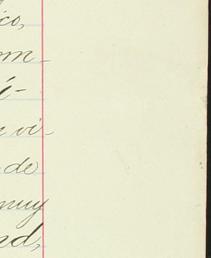 ico,
om
é-
n vi-
de
muy
nd,